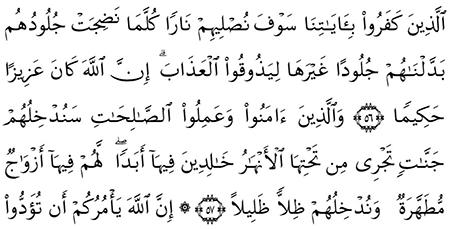 ٱلَّذِينَ كَفَرُوا۟ بِـَٔايَـٰتِنَا سَوْفَ نُصْلِيهِمْ نَارًا كُلَّمَا نَضِجَتْ جُلُودُهُم
بَدَّلْنَـٰهُمْ جُلُودًا غَيْرَهَا لِيَذُوقُوا۟ الْعَذَابَ ۗ إِنَّ اللَّهَ كَانَ عَزِيزًا
حَكِيمًا ﴿٥٦﴾ وَالَّذِينَ ءَامَنُوا۟ وَعَمِلُوا۟ الصَّـٰلِحَـٰتِ سَنُدْخِلُهُمْ
جَنَّـٰتٍ تَجْرِى مِن تَحْتِهَا الْأَنْهَـٰرُ خَـٰلِدِينَ فِيهَآ أَبَدًا ۖ لَّهُمْ فِيهَآ أَزْوَٰجٌ
مُّطَهَّرَةٌ ۖ وَنُدْخِلُهُمْ ظِلًّا ظَلِيلًا ﴿٥٧﴾ ۞ إِنَّ اللَّهَ يَأْمُرُكُمْ أَن تُؤَدُّوا۟